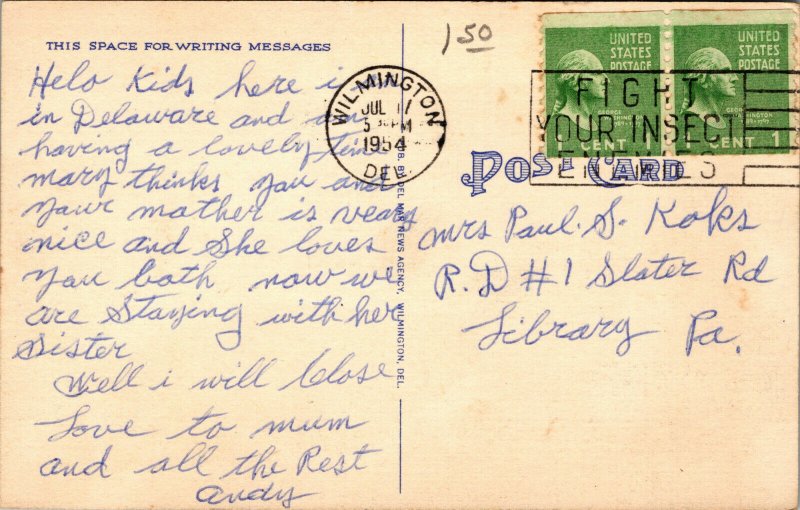 THIS SPACE FOR WRITING MESSAGES
Helo Kids here i
in Delaware and am
having a lovely time
mary thinks you and
your mother is veary
nice and She loves
you both now we
are Staying with her
Sister
Well i will Close
Love to mum
and all the Rest
andy
B. BY DEL MAR NEWS AGENCY, WILMINGTON, DEL.
1 50
WILMINGTON
JUL
PM
1954
DEL.
UNITED
STATES
POSTAGE
GEORGE
WASHINGTON
CENT 1
UNITED
STATES
POSTAGE
CENT 1
FIGHT
YOUR INSECT
ENEMIES
POST CARD
Mrs Paul. S. Koks
R.D #1 Slater Rd
Library Pa.